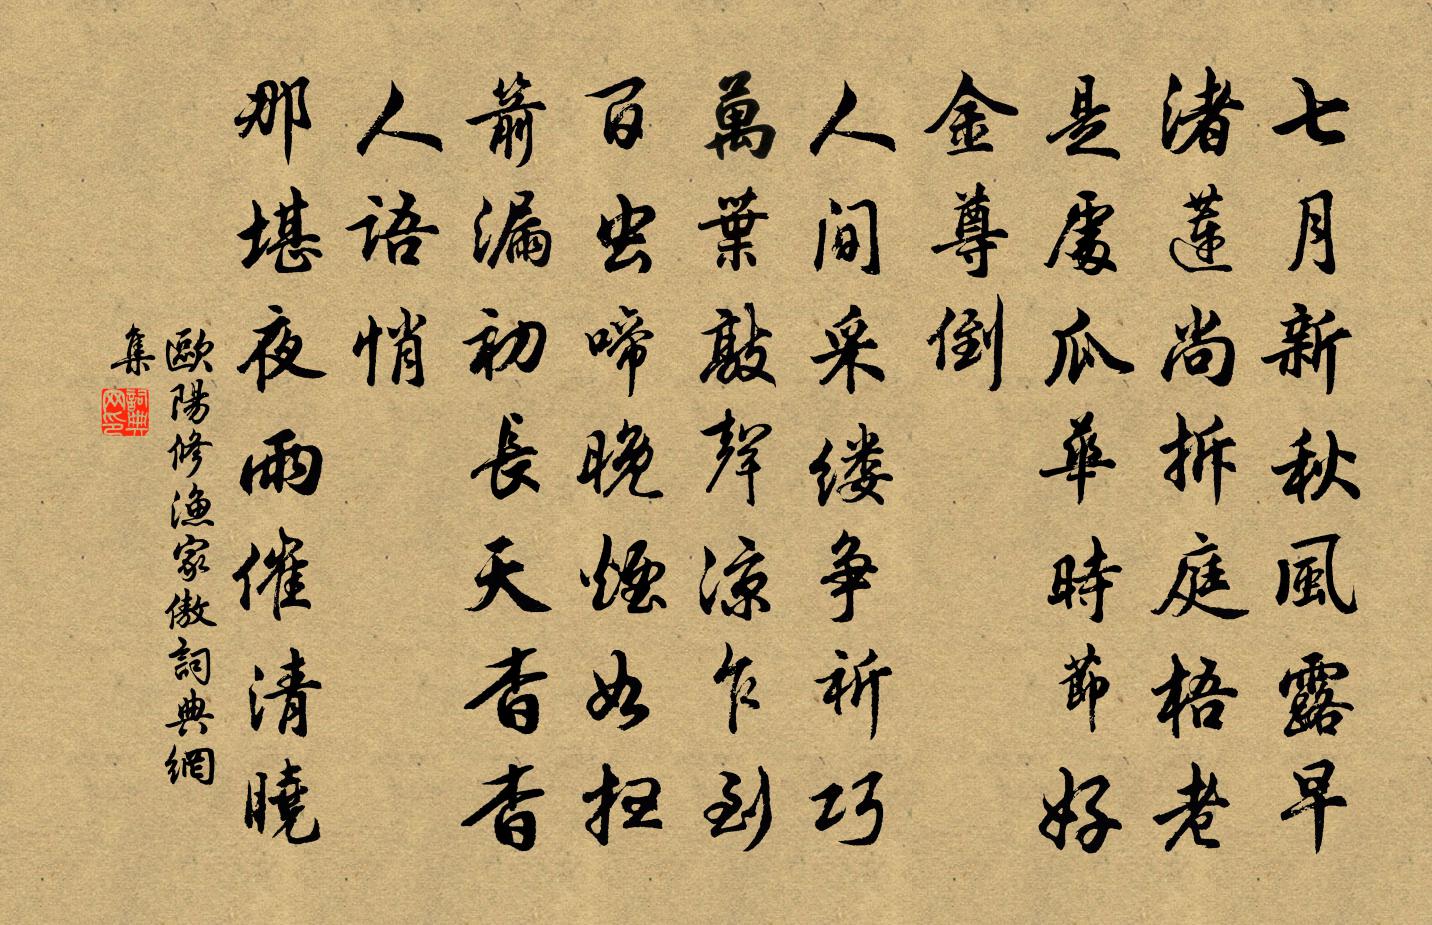 七月新秋風露早
渚蓮尚拆庭梧老
是處瓜華時節好
金尊倒
人間采缕争祈巧
萬葉敲聲涼乍到
百虫啼晚煙如扫
箭漏初長天杳杳
人語悄
那堪夜雨催清曉
歐陽修漁家傲詞典網
集
詞典网印